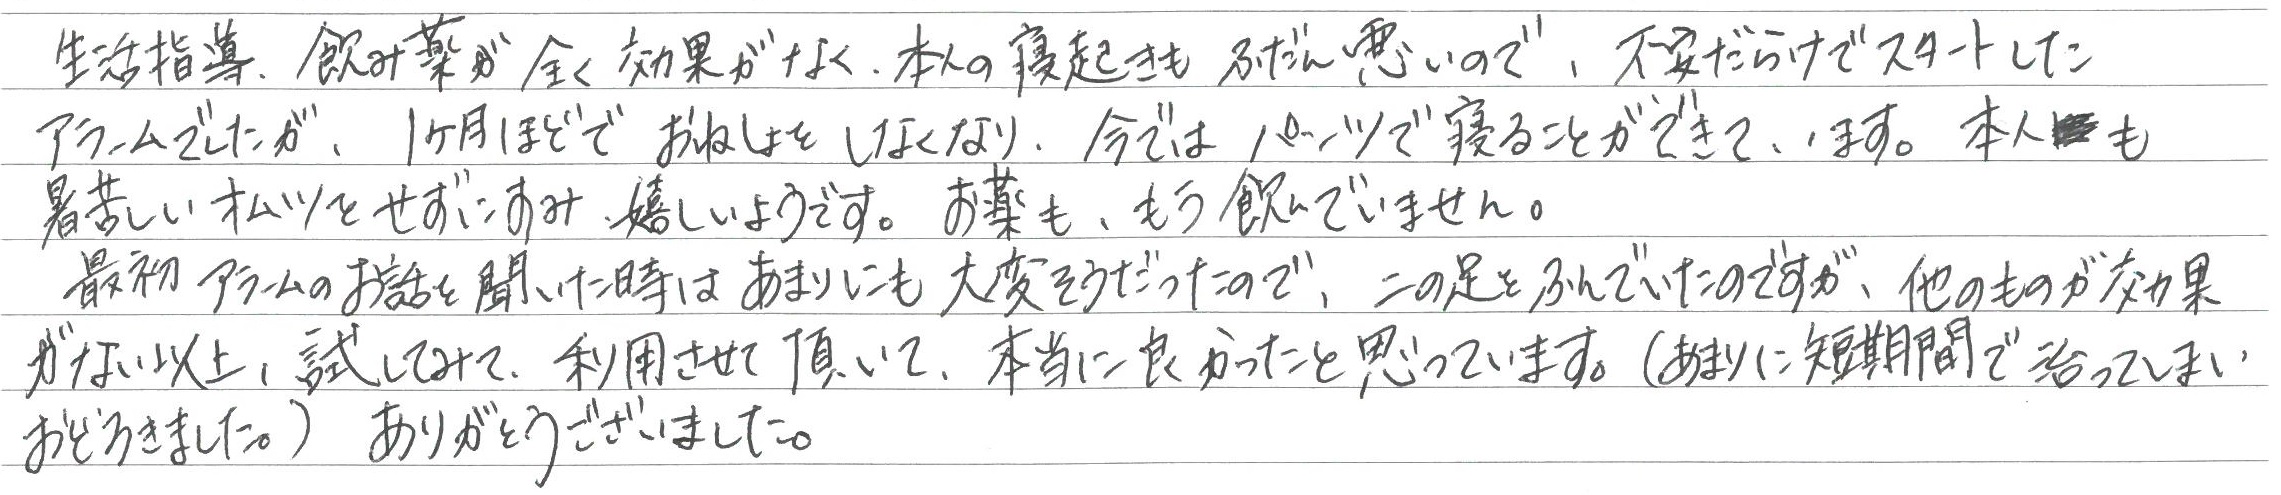 生活指導、飲み薬が全く効果がなく、本人の寝起きもふだん悪いので、不安だらけでスタートした
アラームでしたが、1ヶ月ほどでおねしょをしなくなり、今ではパンツで寝ることができています。本人も
暑苦しいオムツをせずにすみ、嬉しいようです。お薬も、もう飲んでいません。
最初アラームのお話を聞いた時はあまりにも大変そうだったので、二の足をふんでいたのですが、他のものが効果
がない以上、試してみて、利用させて頂いて、本当に良かったと思っています。(あまりに短期間で治ってしまい
おどろきました。) ありがとうございました。